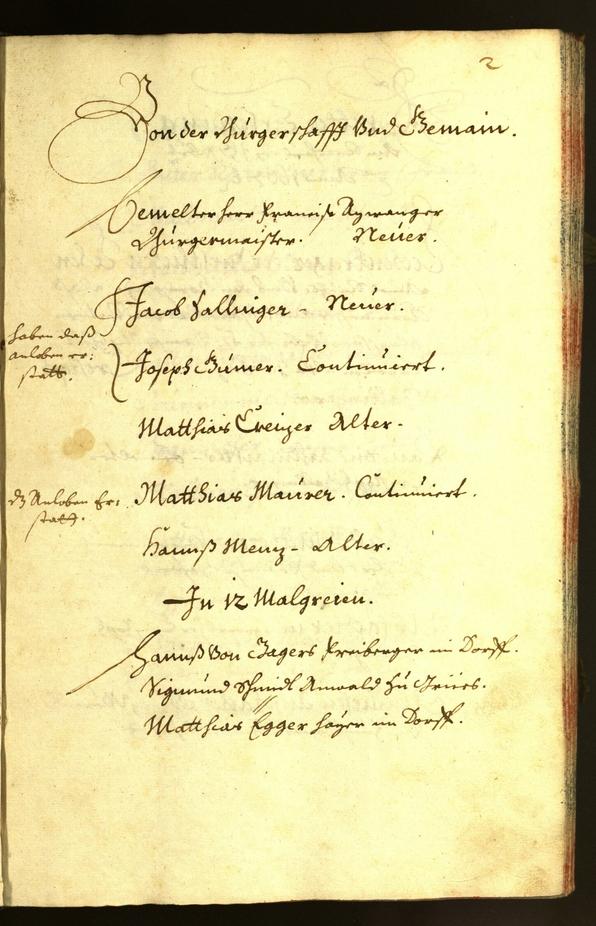 2
Von der Bürgerschafft Vnd Gemain.
Bemelter herr Francisc Azwanger
Bürgermaister. Neüer.
Jacob Sallniger - Neüer.
haben daß
anloben er:
statt.
Joseph Gümer. Continuiert.
Matthias Creizer Alter.
dz Anloben Er:
statt.
Matthias Maurer. Continuiert.
Hannß Menz - Alter.
In 12 Malgreien.
Hannß Von Zagers Freiberger im Dorff.
Sigmund Schmidl Anwald Zu Gries.
Matthias Egger Sayer im Dorff.